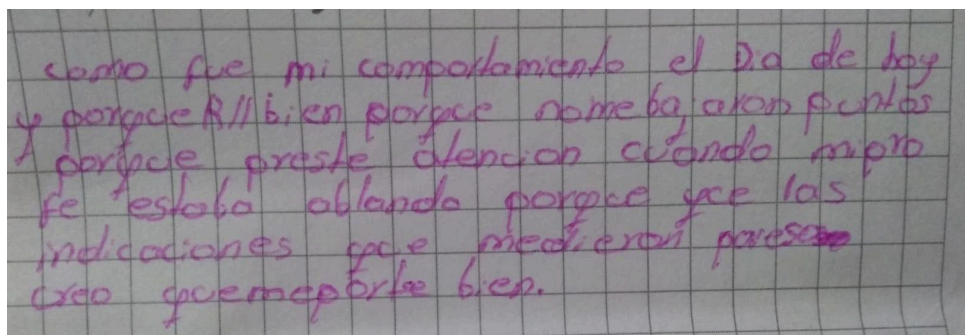 como fue mi comportamiento el Dia de hoy
y porqce R// bien porqce nomebajaron puntos
porqce preste atencion cuando mipro
fe estaba ablando porqce qce las
indicaciones qce medieron poreso
creo qcemeporte bien.